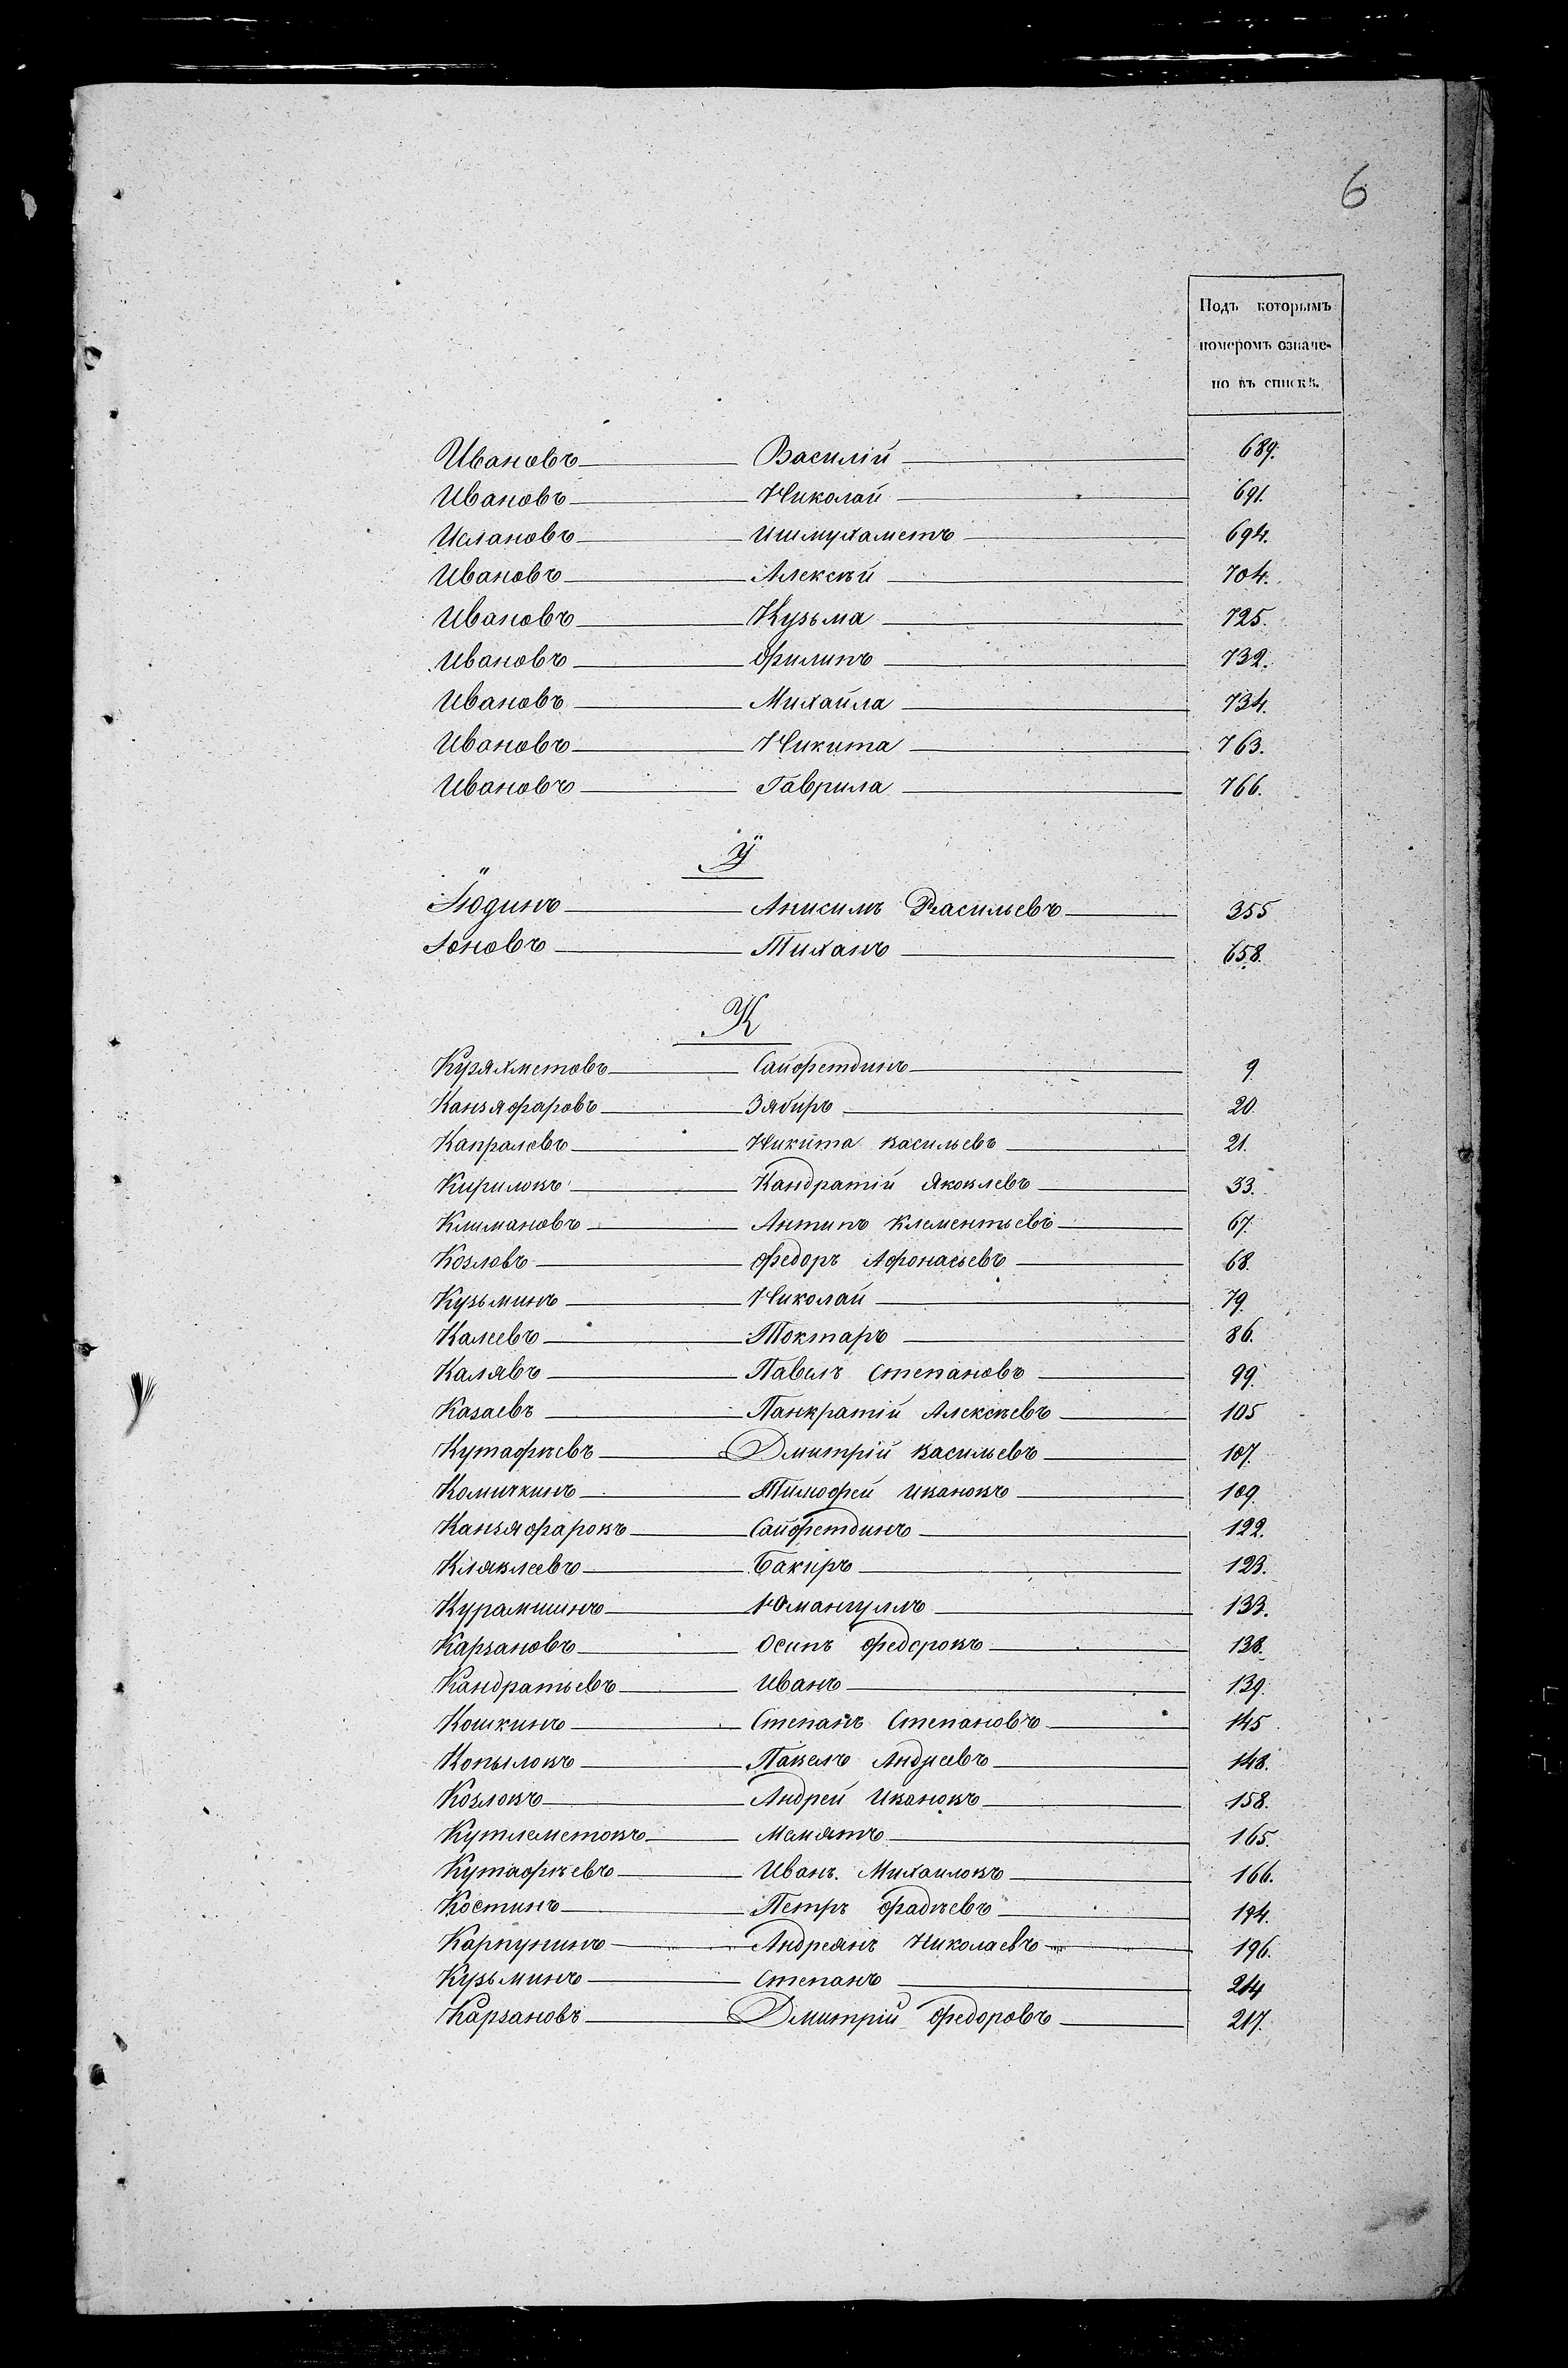 6
Подъ которымъ
номеромъ означе-
но въ спискѣ.
Ивановъ Василій 689.
Ивановъ Николай 691.
Ислановъ Ишмухаметъ 694.
Ивановъ Алексѣй 704.
Ивановъ Кузьма 725.
Ивановъ Филипъ 732.
Ивановъ Михайла 734.
Ивановъ Никита 763.
Ивановъ Гаврила 766.
Ӱ
Анисимъ Васильевъ 355
Іоновъ Тиханъ 658.
К
Куряхметовъ Сайфетдинъ 9.
Канзяфаровъ Зябиръ 20.
Капралевъ Никита Васильевъ 21.
Кириловъ Кандратій Яковлевъ 33.
Климановъ Антипъ Клементьевъ 67.
Козловъ Федоръ Афонасьевъ 68.
Кузьминъ Николай 79.
Калеевъ Токтаръ 86.
Калявъ Павелъ Степановъ 99.
Казаевъ Панкратій Алексѣевъ 105
Кутафѣевъ Дмитрій Васильевъ 107.
Комичкинъ Тимофей Ивановъ 109.
Канзяфаровъ Сайфетдинъ 122.
Клявлеевъ Бакиръ 123.
Курамшинъ Юмангулъ 133.
Карзановъ Осипъ Федоровъ 138.
Кандратьевъ Иванъ 139.
Кошкинъ Степанъ Степановъ 145.
Копыловъ Павелъ Андреевъ 148.
Козловъ Андрей Ивановъ 158.
Кутлеметовъ Мемятъ 165.
Кутафѣевъ Иванъ. Михаиловъ 166.
Костинъ Петръ Фадѣевъ 194.
Карпунинъ Андреянъ Николаевъ 196.
Кузьминъ Степанъ 214
Карзановъ Дмитрій Федоровъ 217.